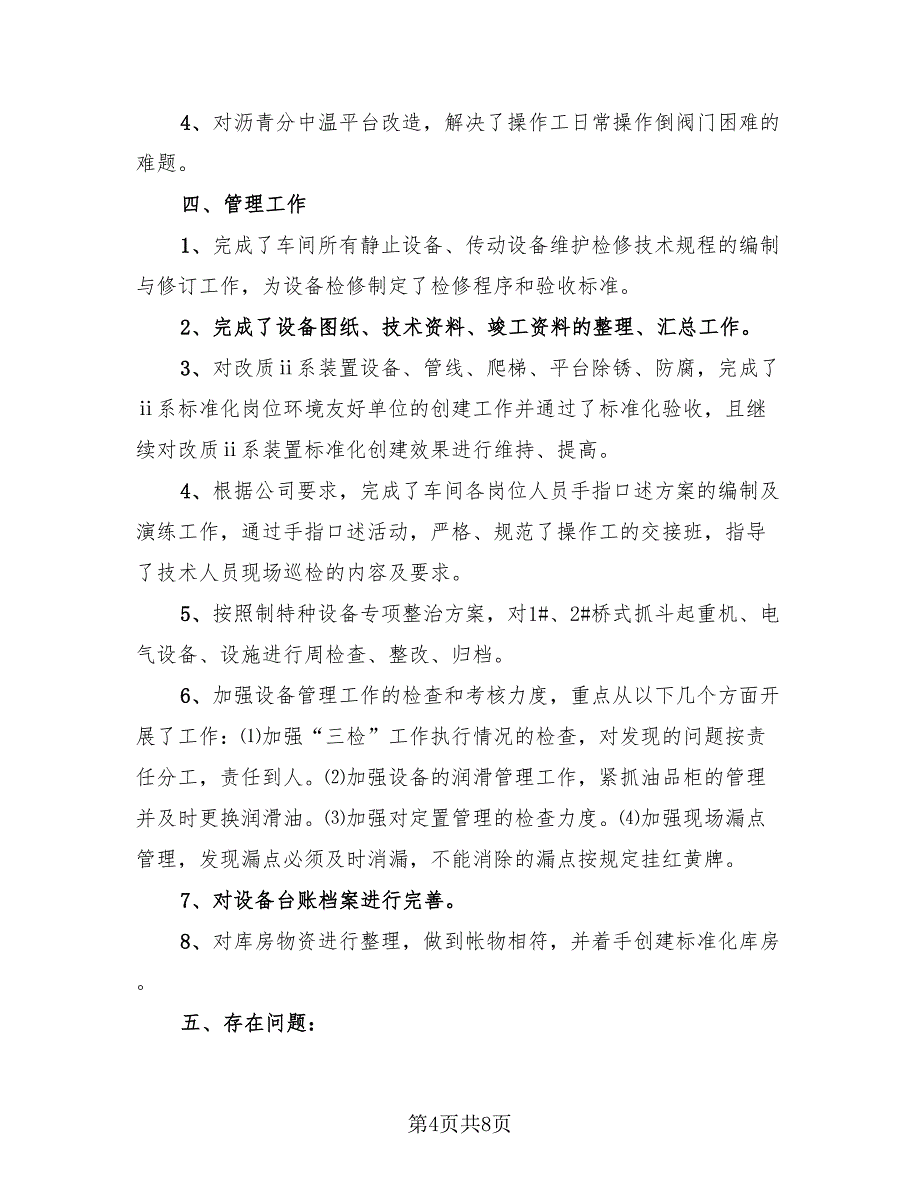 4、对沥青分中温平台改造，解决了操作工日常操作倒阀门困难的
难题。
四、管理工作
1、完成了车间所有静止设备、传动设备维护检修技术规程的编制
与修订工作，为设备检修制定了检修程序和验收标准。
2、完成了设备图纸、技术资料、竣工资料的整理、汇总工作。
3、对改质ⅱ系装置设备、管线、爬梯、平台除锈、防腐，完成了
ⅱ系标准化岗位环境友好单位的创建工作并通过了标准化验收，且继
续对改质ⅱ系装置标准化创建效果进行维持、提高。
4、根据公司要求，完成了车间各岗位人员手指口述方案的编制及
演练工作，通过手指口述活动，严格、规范了操作工的交接班，指导
了技术人员现场巡检的内容及要求。
5、按照制特种设备专项整治方案，对1#、2#桥式抓斗起重机、电
气设备、设施进行周检查、整改、归档。
6、加强设备管理工作的检查和考核力度，重点从以下几个方面开
展了工作：⑴加强“三检”工作执行情况的检查，对发现的问题按责
任分工，责任到人。⑵加强设备的润滑管理工作，紧抓油品柜的管理
并及时更换润滑油。⑶加强对定置管理的检查力度。⑷加强现场漏点
管理，发现漏点必须及时消漏，不能消除的漏点按规定挂红黄牌。
7、对设备台账档案进行完善。
8、对库房物资进行整理，做到帐物相符，并着手创建标准化库房
。
五、存在问题：
第4页共8页